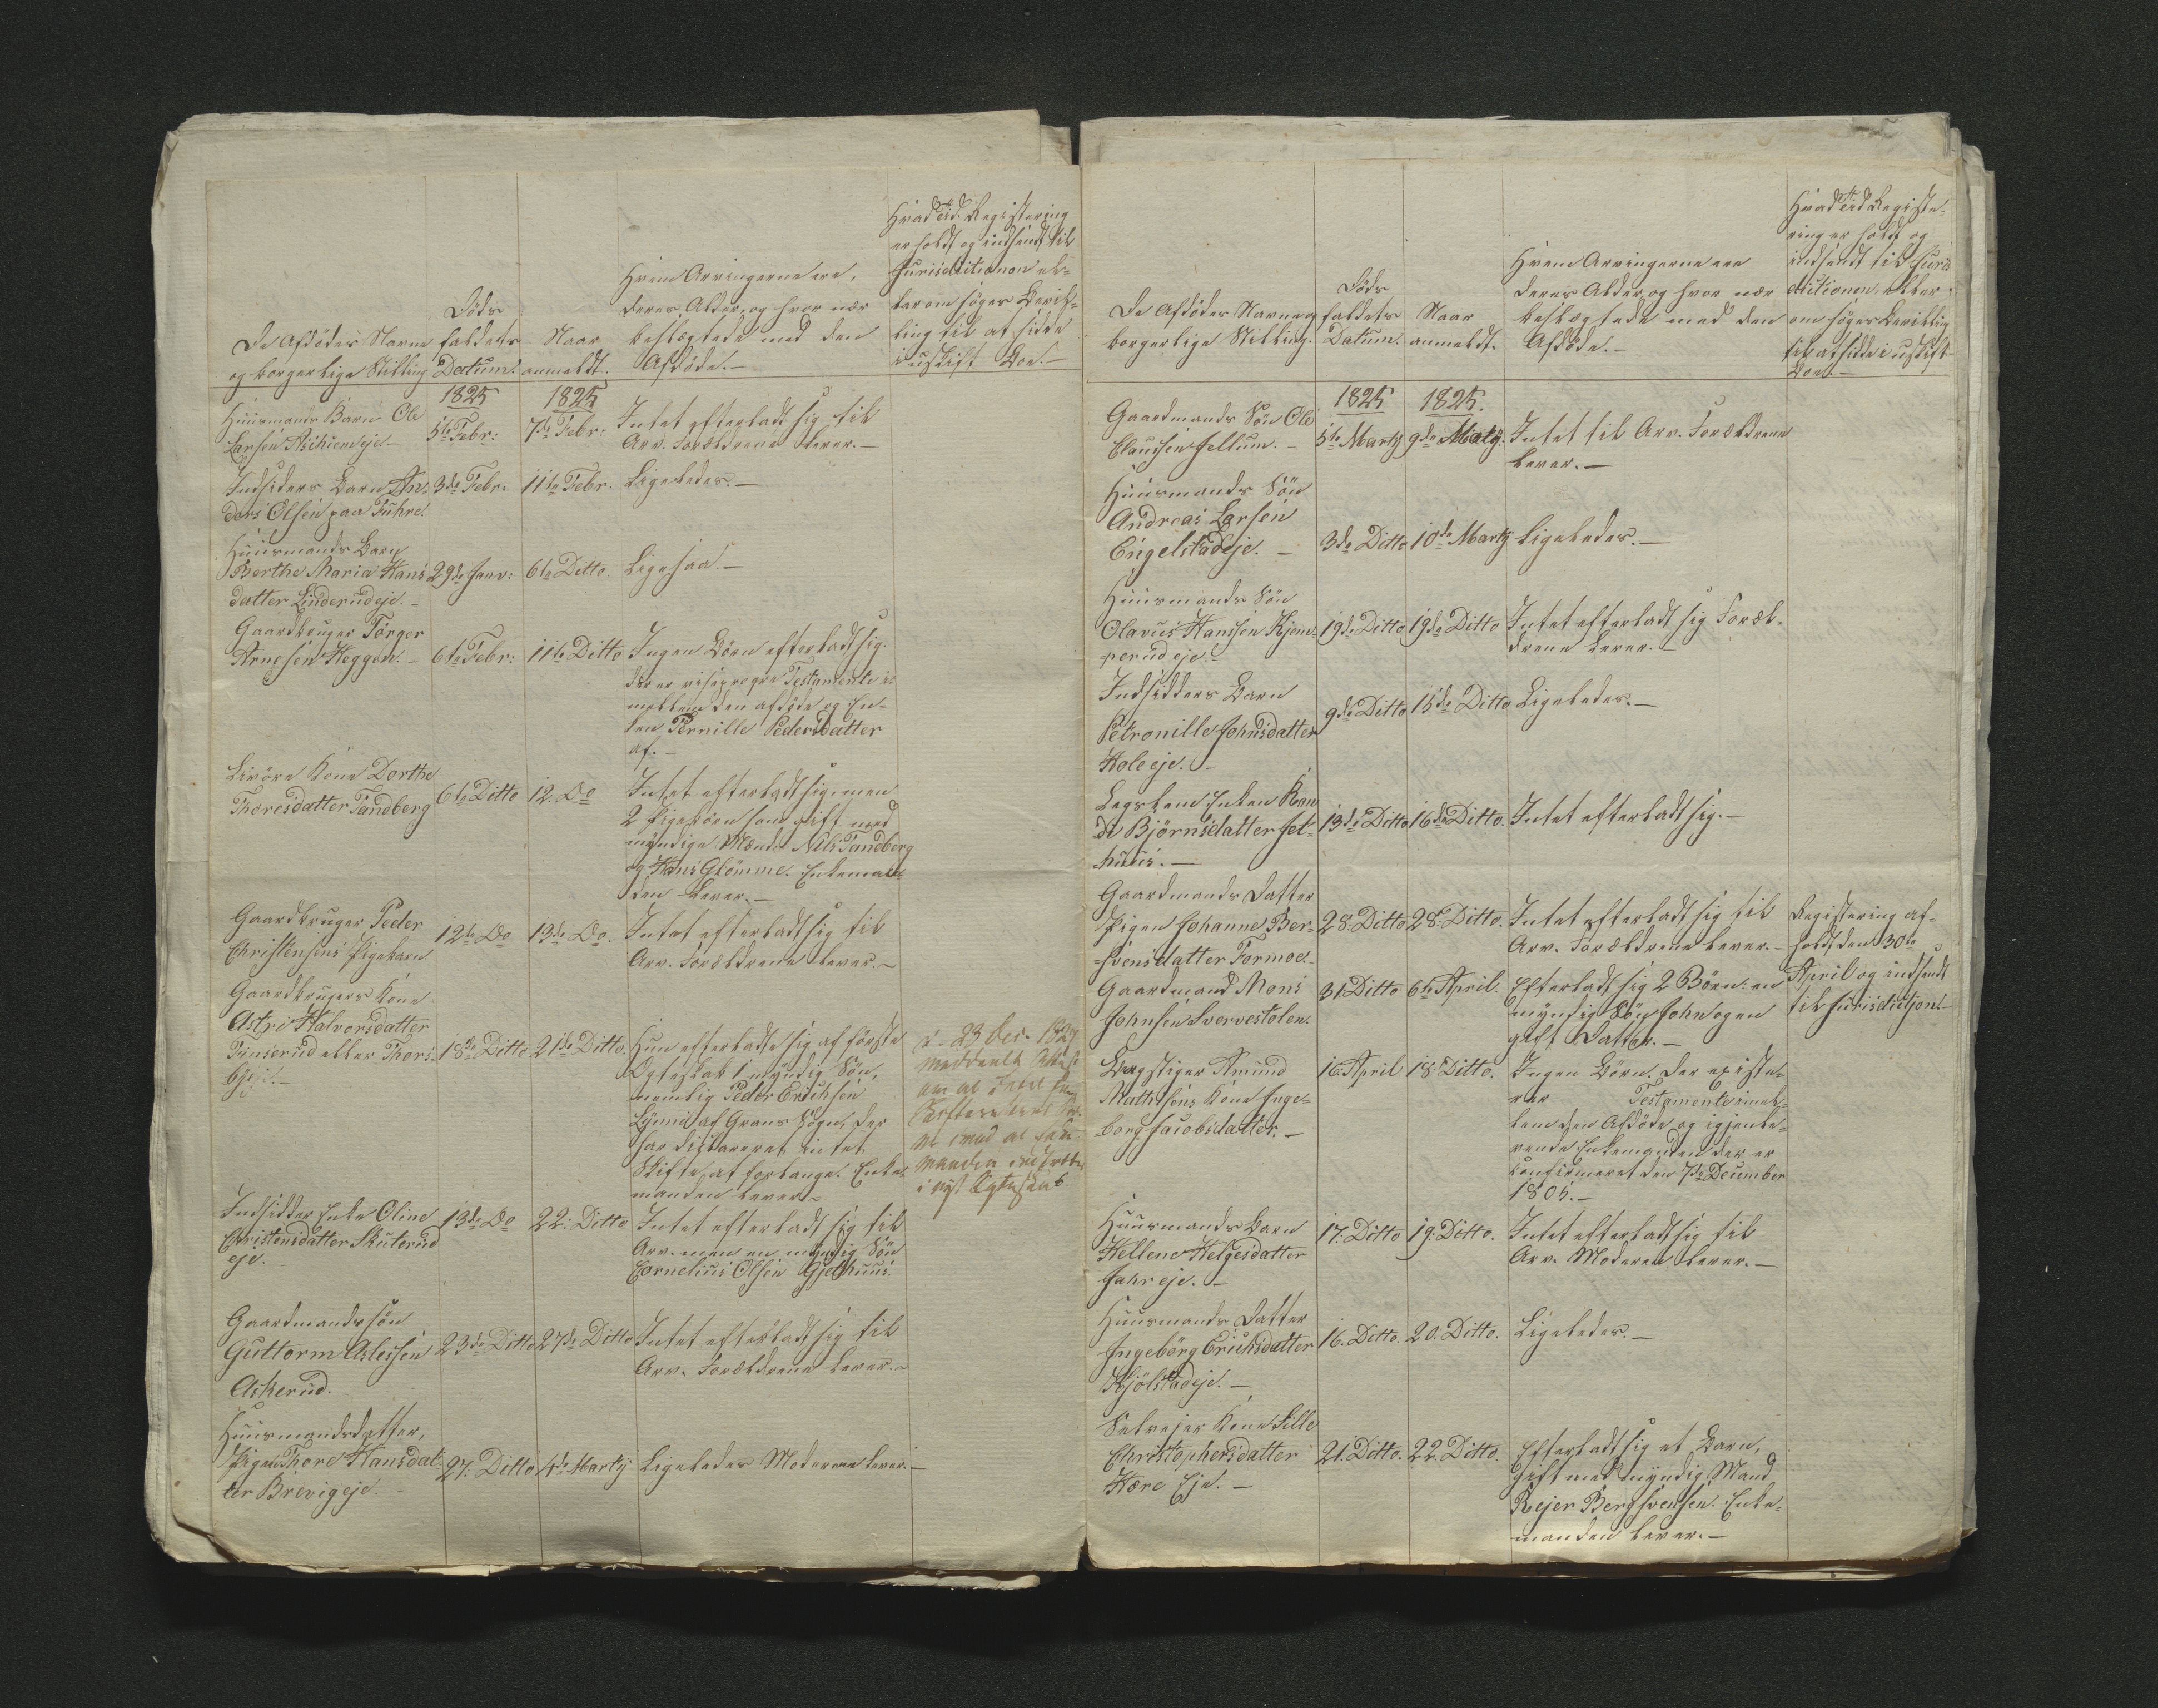 De Afdödes Navne
og borgerlige Stilling
Döds
faldets
Datum.
Naar
anmeldt.
Hvem Arvingerne ere,
deres Alder, og hvor nær
beslægtede med den
Afdöde.-
Hvad Tid Registering
er holdt og indsendt til
Jurisdictionen el-
ler om söges Bevil-
ling til at sidde
i uskift Boe.-
1825
1825
Huusmands Barn Ole
Larsen eje-
5te Febr:
7de Febr:
Intet efterladt sig til
Arv. Forældrene lever.-
Indsiders Barn An-
ders Olsen paa Fuhre.
3de Febr:
11te Febr.
Ligeledes.-
Huusmands Barn
Berthe Maria Hans
datter Linderudeje.-
29de Janv:
6te Ditto.
Ligesaa.-
Gaardbruger Törger
Arnesen Heggen.-
6te Febr:
11te Ditto
Ingen Börn efterladt sig.
der er Testamente i-
mellem den afdöde og En-
ken Pernille Pedersdatter
af.-
Kone Dorthe
Thoresdatter Tandberg
6te Ditto
12. Do
Intet efterladt sig, men
2 Pigebörn som gift med
myndige Mænd Nils Tandberg
og Hans Glömme. Enkeman-
den lever.-
Gaardbruger Peder
Christensens Pigebarn
12te Do
13de Do.
Intet efterladt sig til
Arv. Forældrene lever.-
Gaardbrugers Kone
Astri Halvorsdatter
eller Thors-
bye.-
18de Ditto
21de Ditto.
Hun efterladte sig af förste
Ægteskab 1 myndig Sön,
nemlig Peder Erichsen
Lynne af Grans Sogn, der
har declareret intet
Skifte at forlange. Enke-
manden lever.-
d. 23 Dec. 1827
meddeelt Attest
om at Intet fra
Skiftere
mod at Enke
manden indtræder
i nyt Egteskab
Indsidder Enke Oline
Christensdatter Skuterud
eje.-
13de Do
22. Ditto
Intet efterladt sig til
Arv. men en myndig Sön
Cornelius Olsen Gjelhuus.
Gaardmands sön
Guttorm Aslessen
Askerud.
23de Ditto
27de Ditto
Intet efterladt sig til
Arv. Forældrene lever.-
Huusmandsdatter,
Pigen Thore Hansdat-
ter Brevigeje.-
27. Ditto
4de Martÿ
Ligeledes Moderen lever.-
De Afdödes Navne og
borgerlige Stilling.
Döds
faldets
Datum.
Naar
anmeldt.
Hvem Arvingerne ere
deres Alder, og hvor nær
beslægtede med den
Afdöde.-
Hvad Tid Registe-
ring er holdt og
indsendt til Juris
dictionen, eller
om söges Bevilling
til at sidde i uskift
Boe.-
1825
1825.
Gaardmands Sön Ole
Claussen Jellum.-
5te Martÿ
9de Martÿ.
Intet til Arv. Forældrene
lever.-
Huusmands Sön
Andreas Larsen
Engelstadeje.-
3de Ditto
10de Martÿ
Ligeledes.-
Huusmands Sön
Olavus Hanssen Kjem-
perudeje.-
19de Ditto
19de Ditto
Intet efterladt sig Foræl-
drene lever.-
Indsidders Barn
Petronille Johnsdatter
Holeeje.-
9de Ditto
15de Ditto
Ligeledes.-
Lægslem Enken Ran
di Björnsdatter Jel-
huus.-
13de Ditto
16de Ditto.
Intet efterladt sig.-
Gaardmands Datter
Pigen Johanne Ber-
svensdatter Formoe.-
28. Ditto
28. Ditto.
Intet efterladt sig til
Arv. Forældrene lever.-
Registering af-
holdt den 30te
April og indsendt
til Jurisdictjon.-
Gaardmand Mons
Johnsen Svervestolen.
31. Ditto
6te April.
Efterladt sig 2 Börn: en
myndig Sön John og en
gift Datter.-
Bergstiger Amund
Mathisens Kone Inge-
borg Jacobsdatter.-
16. April
18. Ditto.
Ingen Börn. Der existe-
rer Testamente imel-
lem den Afdöde og igjenle-
vende Enkemanden der er
confirmeret den 7de December
1805.-
Huusmands Barn
Hellene Helgesdatter
Jahreje.-
17. Ditto
19. Ditto.
Intet efterladt sig til
Arv. Moderen lever.-
Huusmands Datter
Ingeborg Erichsdatter
Kjölstadeje.-
16. Ditto.
20. Ditto.
Ligeledes.-
Selvejer Kone Sille
Christophersdatter
Hære Eje.-
21. Ditto.
22. Ditto.
Efterladt sig et Barn,
gift med myndig Mand
Rejer Bergsvensen. Enke-
manden lever.-